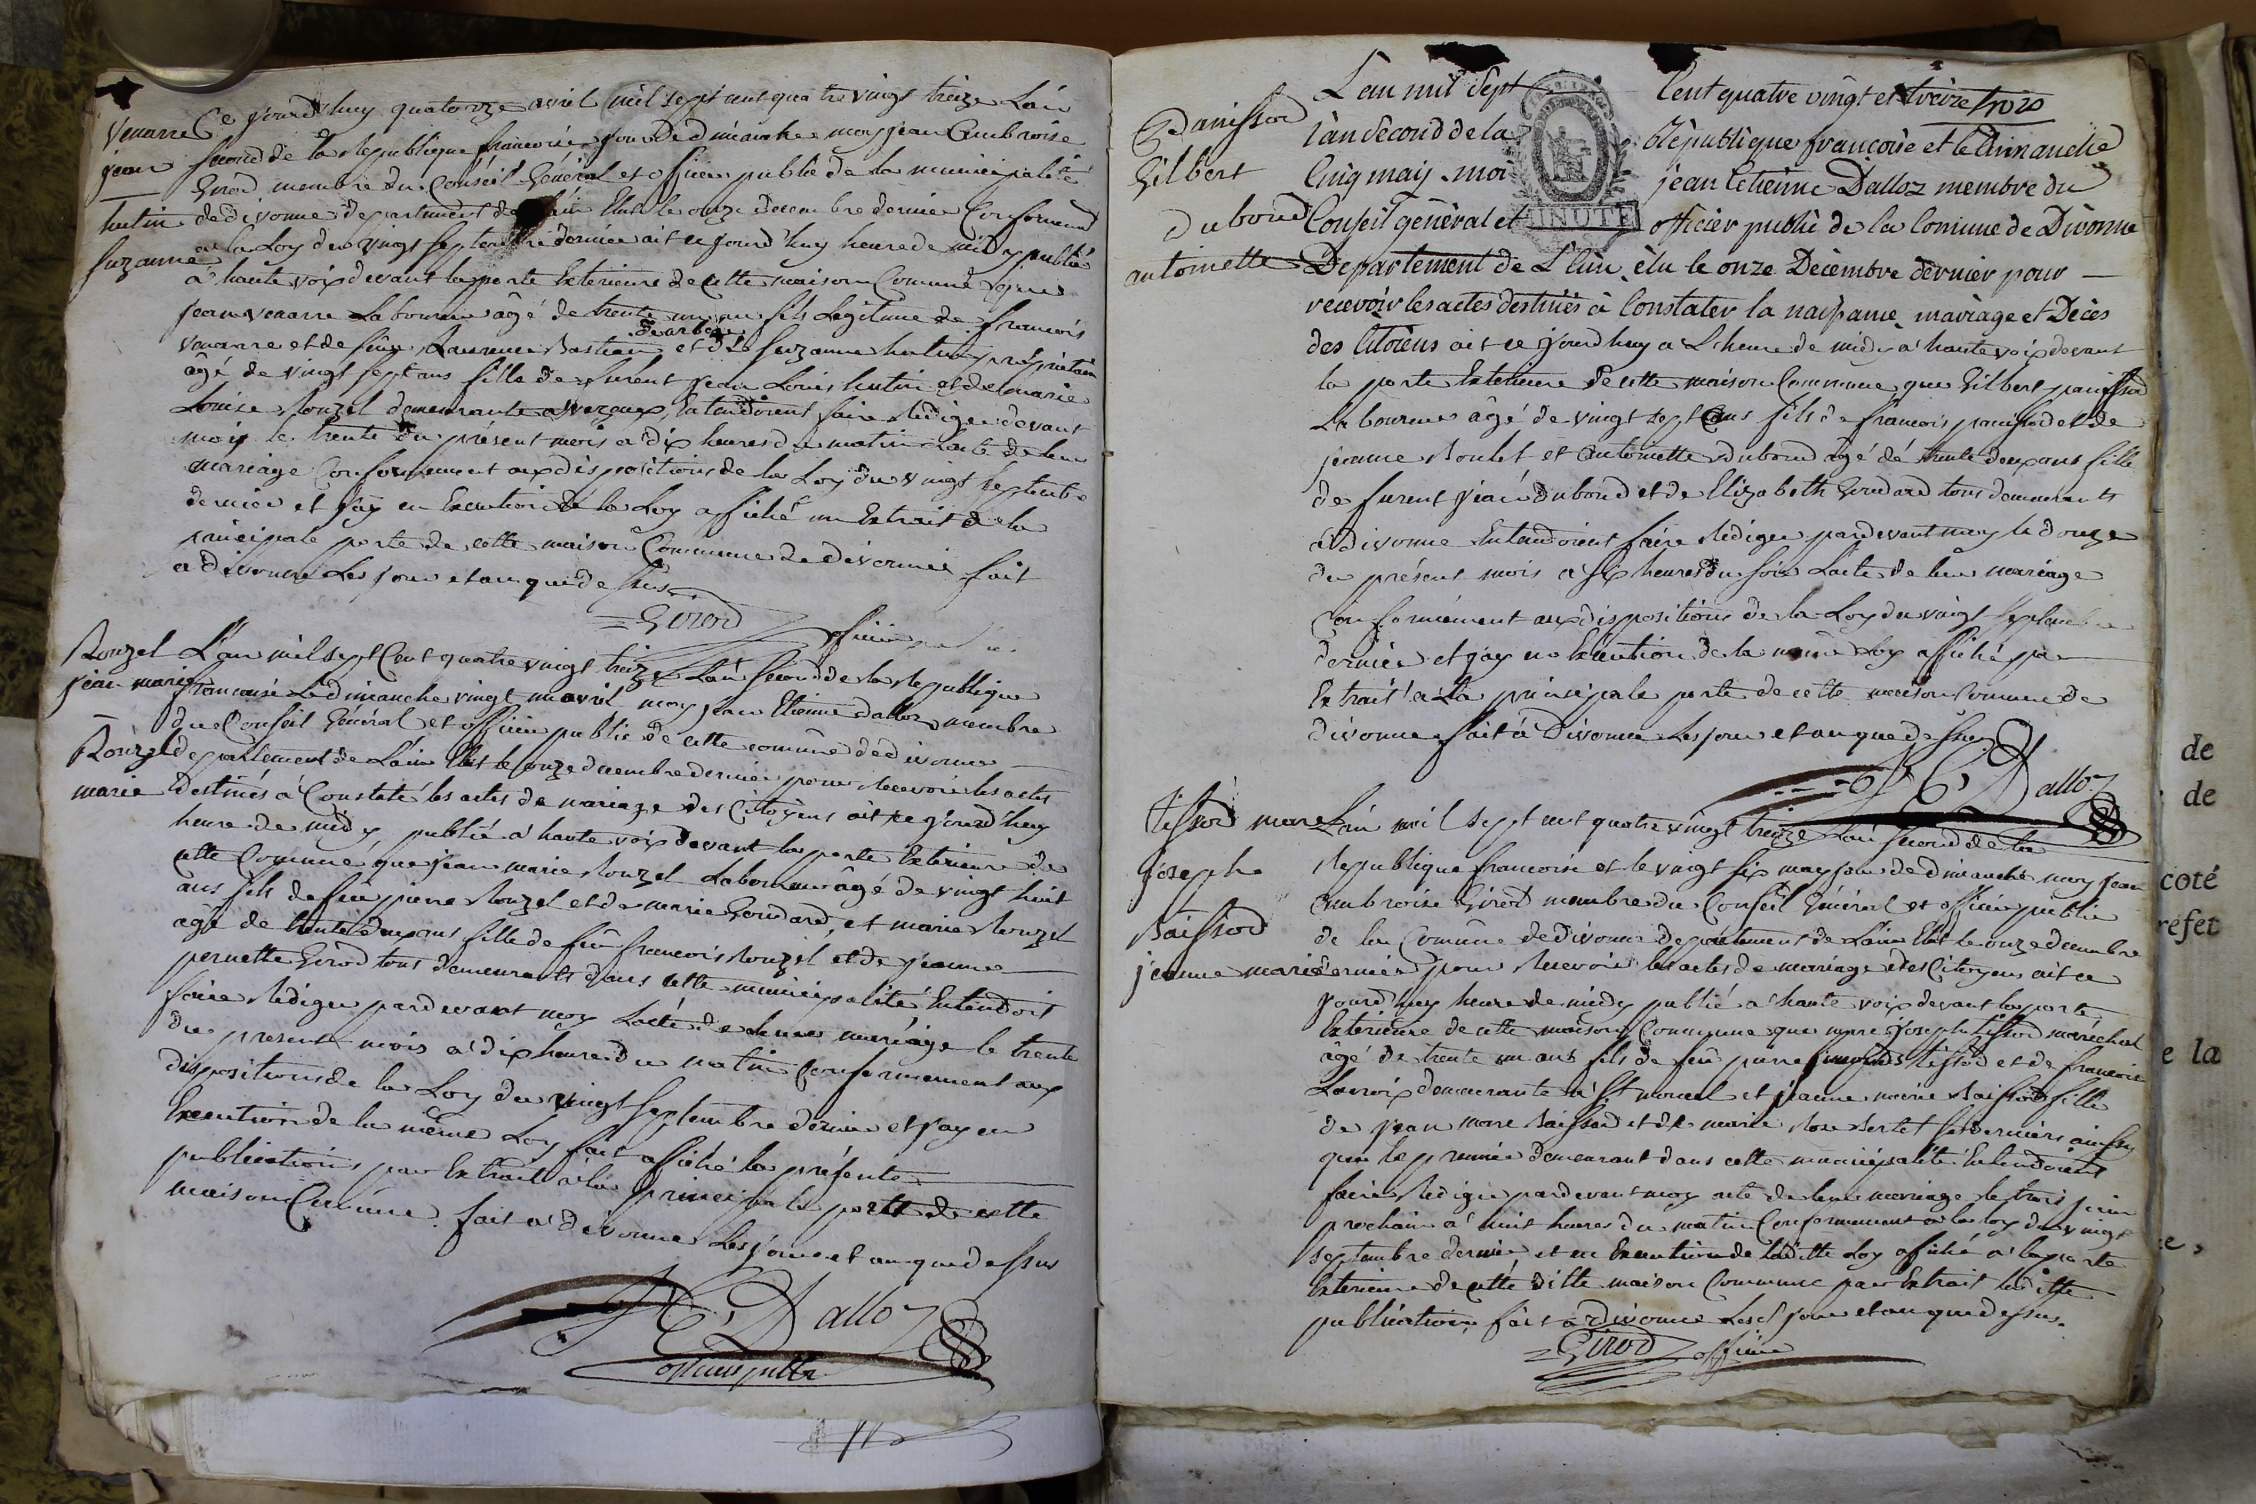 Ce jourd'huy quatorze avril mil sept cent quatre vingt treize L'an
Venarre
jean
hutin
Suzanne
second de la Republique francoise jour de dimanche moy jean Ambroise
Girod membre du Conseil Général et officier public de la municipalité
de divonne departement de L'ain Elut le onze decembre dernier Conformement
a la Loy du vingt septembre dernier ait ce jourd'huy heure de midy publié
à haute voix devant la porte Exterieure de cette maison Commune que
jean venarre Laboureur âgé de trente un an fils Légitime de francois
venarre et de feue Laurence Bastian et de Suzanne hutin
âgé de vingt sept ans fille de furent jean Louis hutin et de marie
Louise Rouzel demeurante a vezenex Entendoient faire Rediger devant
moy le trente du présent mois a dix heures du matin L'acte de leur
mariage Conformement aux dispositions de la Loy du vingt septembre
dernier et j'ay en Execution de la Loy affiché un Extrait a la
principale porte de cette maison Commune de divonne fait
a divonne Les jour et an que dessus
Girod officier
Rouzel
jean marie
Rouzel
marie
L'an mil sept Cent quatre vingt treize L'an second de la Republique
francoise Le dimanche vingt un avril moy jean Etienne dalloz membre
du Conseil Général et officier public de cette comûne de divonne
departement de L'ain Elut le onze decembre dernier pour Recevoir les actes
destinés à Constaté les actes de mariage des Citoyens ait ce jourd'huy
heure de midy publié a haute voix devant la porte Exterieure de
cette Commune que jean marie Rouzel Laboureur âgé de vingt huit
ans fils de feu pierre Rouzel et de marie Goudard, et marie Rouzel
âgé de trente deux ans fille de feû francois Rouzel et de jeanne
pernette Girod tous demeurants dans cette municipalité Entendoit
faire Rediger pardevant moy L'acte de leur mariage le trente
du present mois a dix heure du matin Conformement aux
dispositions de la Loy du vingt septembre dernier et j'ay en
Execution de la même Loy fait affiché la présente
publication par Extrait a la principale porte de cette
maison Comune. fait a divonne Les jour et an que dessus
J. E. Dalloz
officier public
L'an mil Sept Cent quatre vingt et treize trois
Panissod
Gilbert
dubond
antoinette
l'an Sécond de la République françoise et le dimanche
Cinq may. moi jean Etienne Dalloz membre du
Conseil général et officier public de la Comune de Divonne
MINUTE
Département de L'ain, élu le onze Décembre dernier pour
recevoir les actes destinés à Constater la naissance, mariage et Décès
des Citoïens ait ce jourd'huy a L'heure de midy a haute voix devant
la porte Exterieure de cette maison Commune que Gilbert panissod
Laboureur âgé de vingt sept ans fils de francois panissod et de
jeanne Roulet et Antoinette dubond âgé de trente deux ans fille
de furent jean dubond et de Elizabeth Goudard tous demeurants
a divonne Entendoient faire Rediger pardevant moy le douze
du présent mois a six heures du soir L'acte de leur mariage
Conformément aux dispositions de la Loy du vingt septembre
dernier et j'ay en Execution de la même Loy affiché par
Extrait a La principale porte de cette maison Comune de
divonne fait à Divonne Les jour et an que dessus
J. E. Dalloz
tissod marc
joseph
Baissod
jeanne marie
L'an mil sept cent quatre vingt treize L'an second de la
Republique francoise et le vingt six may jour de dimanche moy jean
Ambroise Girod membre du Conseil Général et officier public
de la Comûne de divonne departement de L'ain Elut le onze decembre
dernier pour Recevoir les actes de mariage des Citoyens ait ce
jourd'huy heure de midy publié a haute voix devant la porte
Exterieure de cette maison Commune que marc joseph tissod maréchal
âgé de trente un ans fils de feu pierre tissod et de francoise
Lacroix demeurante a St. et jeanne marie Baissod fille
de jean marc Baissod et de marie Rose Bertet ses derniers ainsy
que le premier demeurant dans cette municipalité Entendoient
faire Rediger pardevant moy acte de leur mariage le trois juin
prochain a huit heures du matin Conformement a la loy du vingt
septembre dernier et en Execution de laditte Loy affiché a la porte
Exterieure de cette ditte maison Commune par Extrait laditte
publication fait a divonne Lesd jour et an que dessus.
Girod officier
de
de
coté
réfet
e la